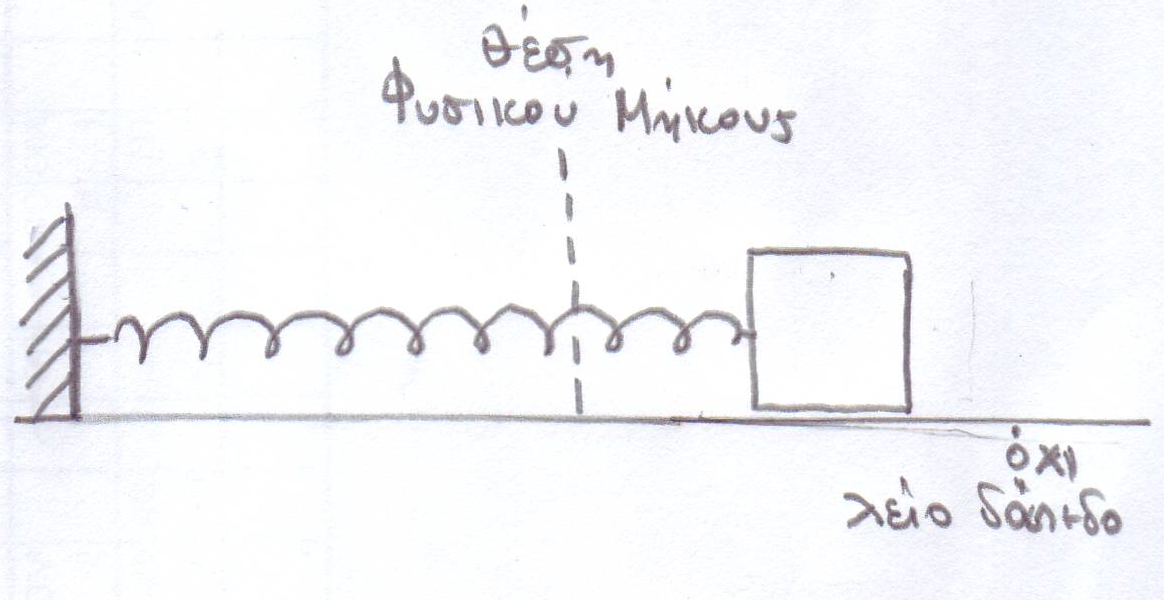 θέση
Φυσικού Μήκους
όχι
λείο δάπεδο